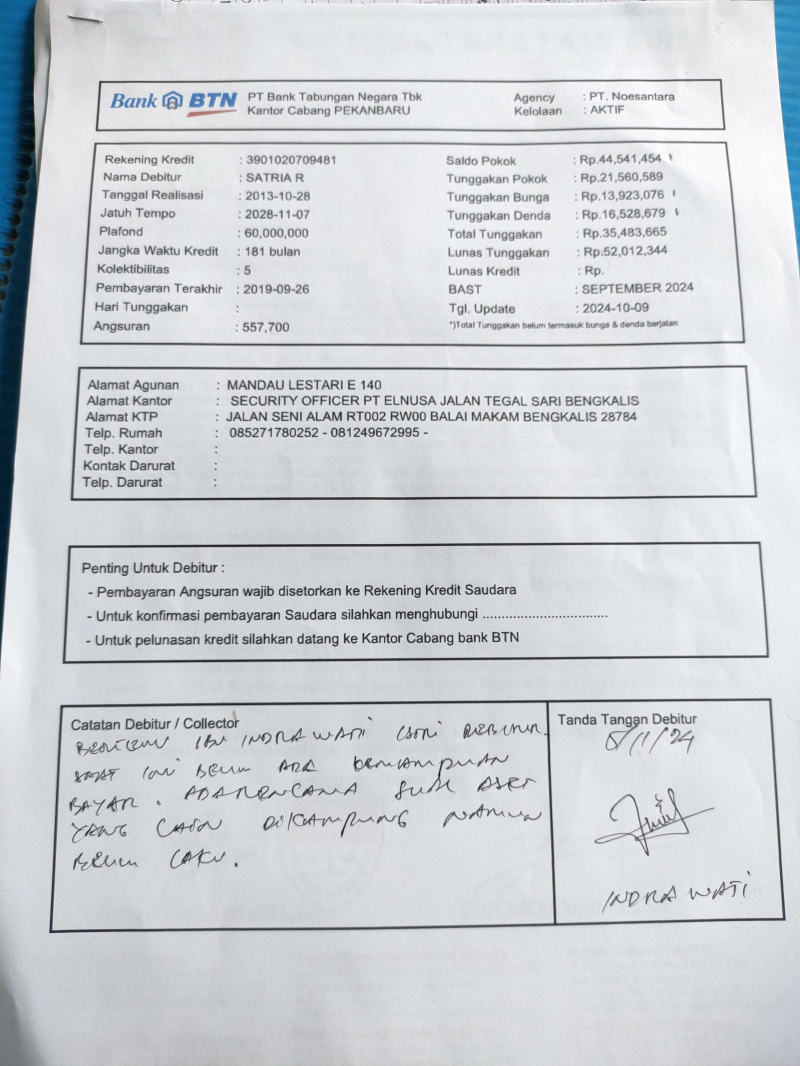 Bank BTN PT Bank Tabungan Negara Tbk
Kantor Cabang PEKANBARU
Agency : PT. Noesantara
Kelolaan : AKTIF
Rekening Kredit : 3901020709481
Nama Debitur : SATRIA R
Tanggal Realisasi : 2013-10-28
Jatuh Tempo : 2028-11-07
Plafond : 60,000,000
Jangka Waktu Kredit : 181 bulan
Kolektibilitas : 5
Pembayaran Terakhir : 2019-09-26
Hari Tunggakan :
Angsuran : 557,700
Saldo Pokok : Rp.44,541,454
Tunggakan Pokok : Rp.21,560,589
Tunggakan Bunga : Rp.13,923,076
Tunggakan Denda : Rp.16,528,679
Total Tunggakan : Rp.35,483,665
Lunas Tunggakan : Rp.52,012,344
Lunas Kredit : Rp.
BAST : SEPTEMBER 2024
Tgl. Update : 2024-10-09
*)Total Tunggakan belum termasuk bunga & denda berjalan
Alamat Agunan : MANDAU LESTARI E 140
Alamat Kantor : SECURITY OFFICER PT ELNUSA JALAN TEGAL SARI BENGKALIS
Alamat KTP : JALAN SENI ALAM RT002 RW00 BALAI MAKAM BENGKALIS 28784
Telp. Rumah : 085271780252 - 081249672995 -
Telp. Kantor :
Kontak Darurat :
Telp. Darurat :
Penting Untuk Debitur :
- Pembayaran Angsuran wajib disetorkan ke Rekening Kredit Saudara
- Untuk konfirmasi pembayaran Saudara silahkan menghubungi ................................
- Untuk pelunasan kredit silahkan datang ke Kantor Cabang bank BTN
Catatan Debitur / Collector
BERTEMU IBU INDRAWATI ISTRI DEBITUR.
SAAT INI BELUM ADA KEMAMPUAN
BAYAR. ADA RENCANA JUAL ASET
YANG DIKAMPUNG NAMUN
BELUM LAKU.
Tanda Tangan Debitur
INDRA WATI